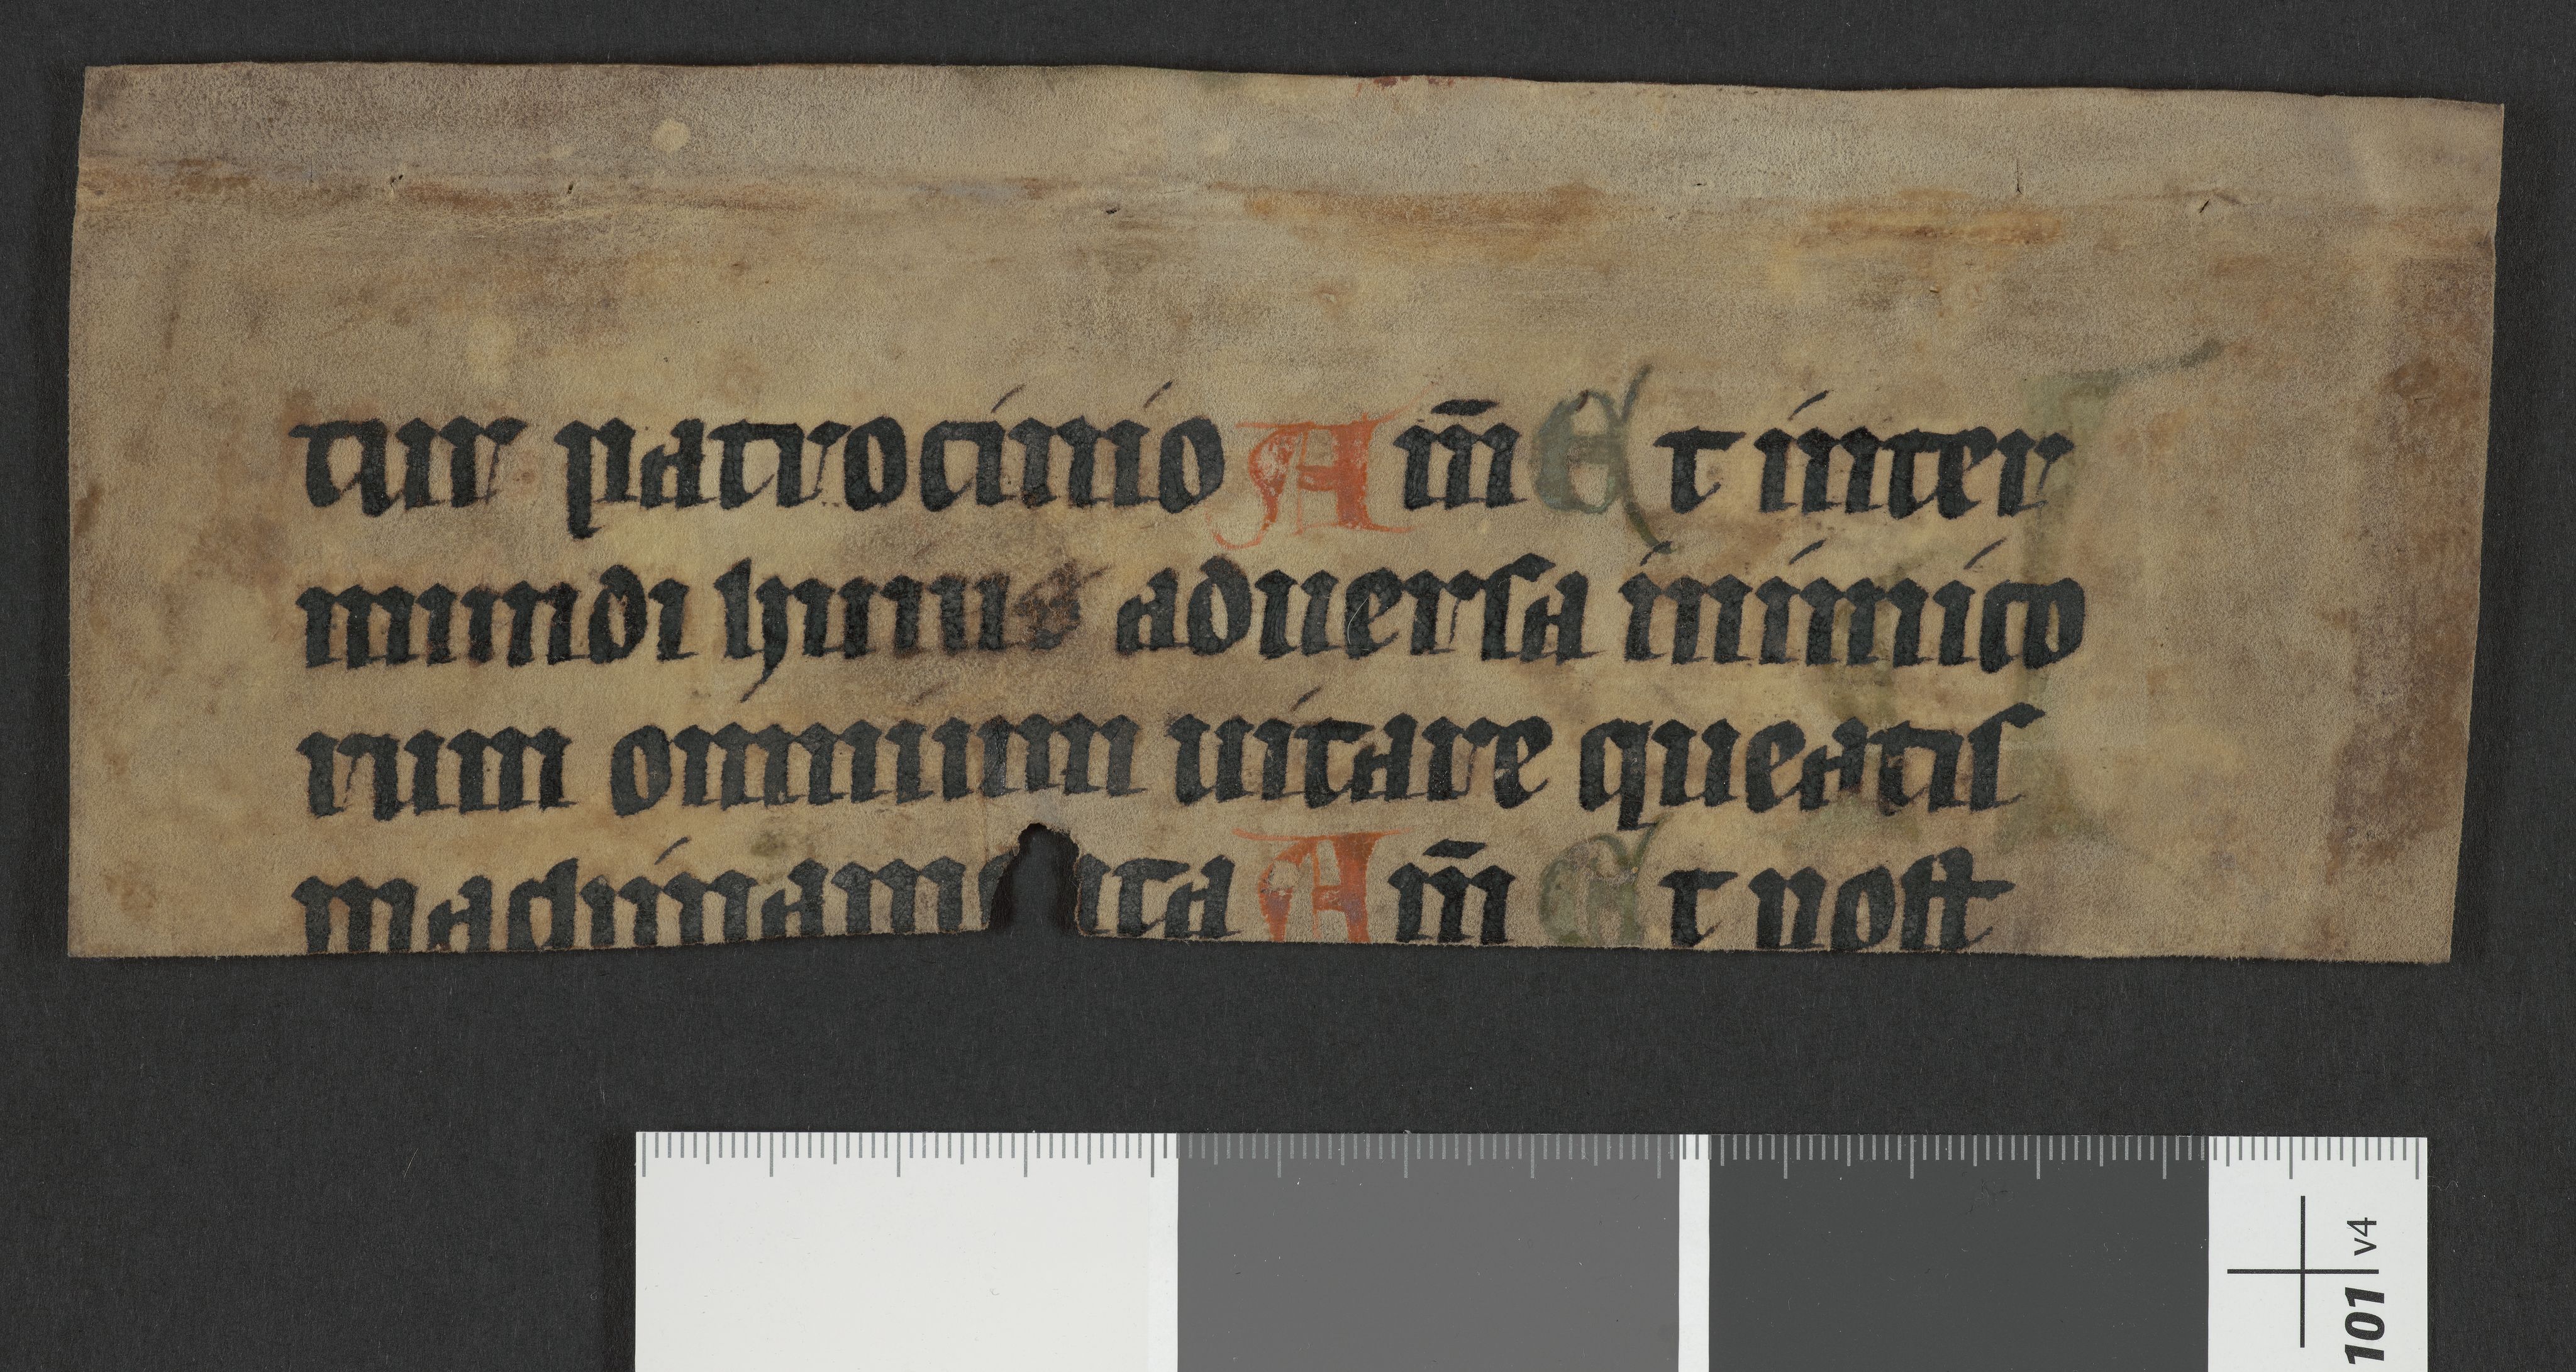 tur patrocinio Am̄ Et inter
mundi huius aduersa inimico
rum omnium uitare queatis
machinamenta Am̄ Et post
101 v4